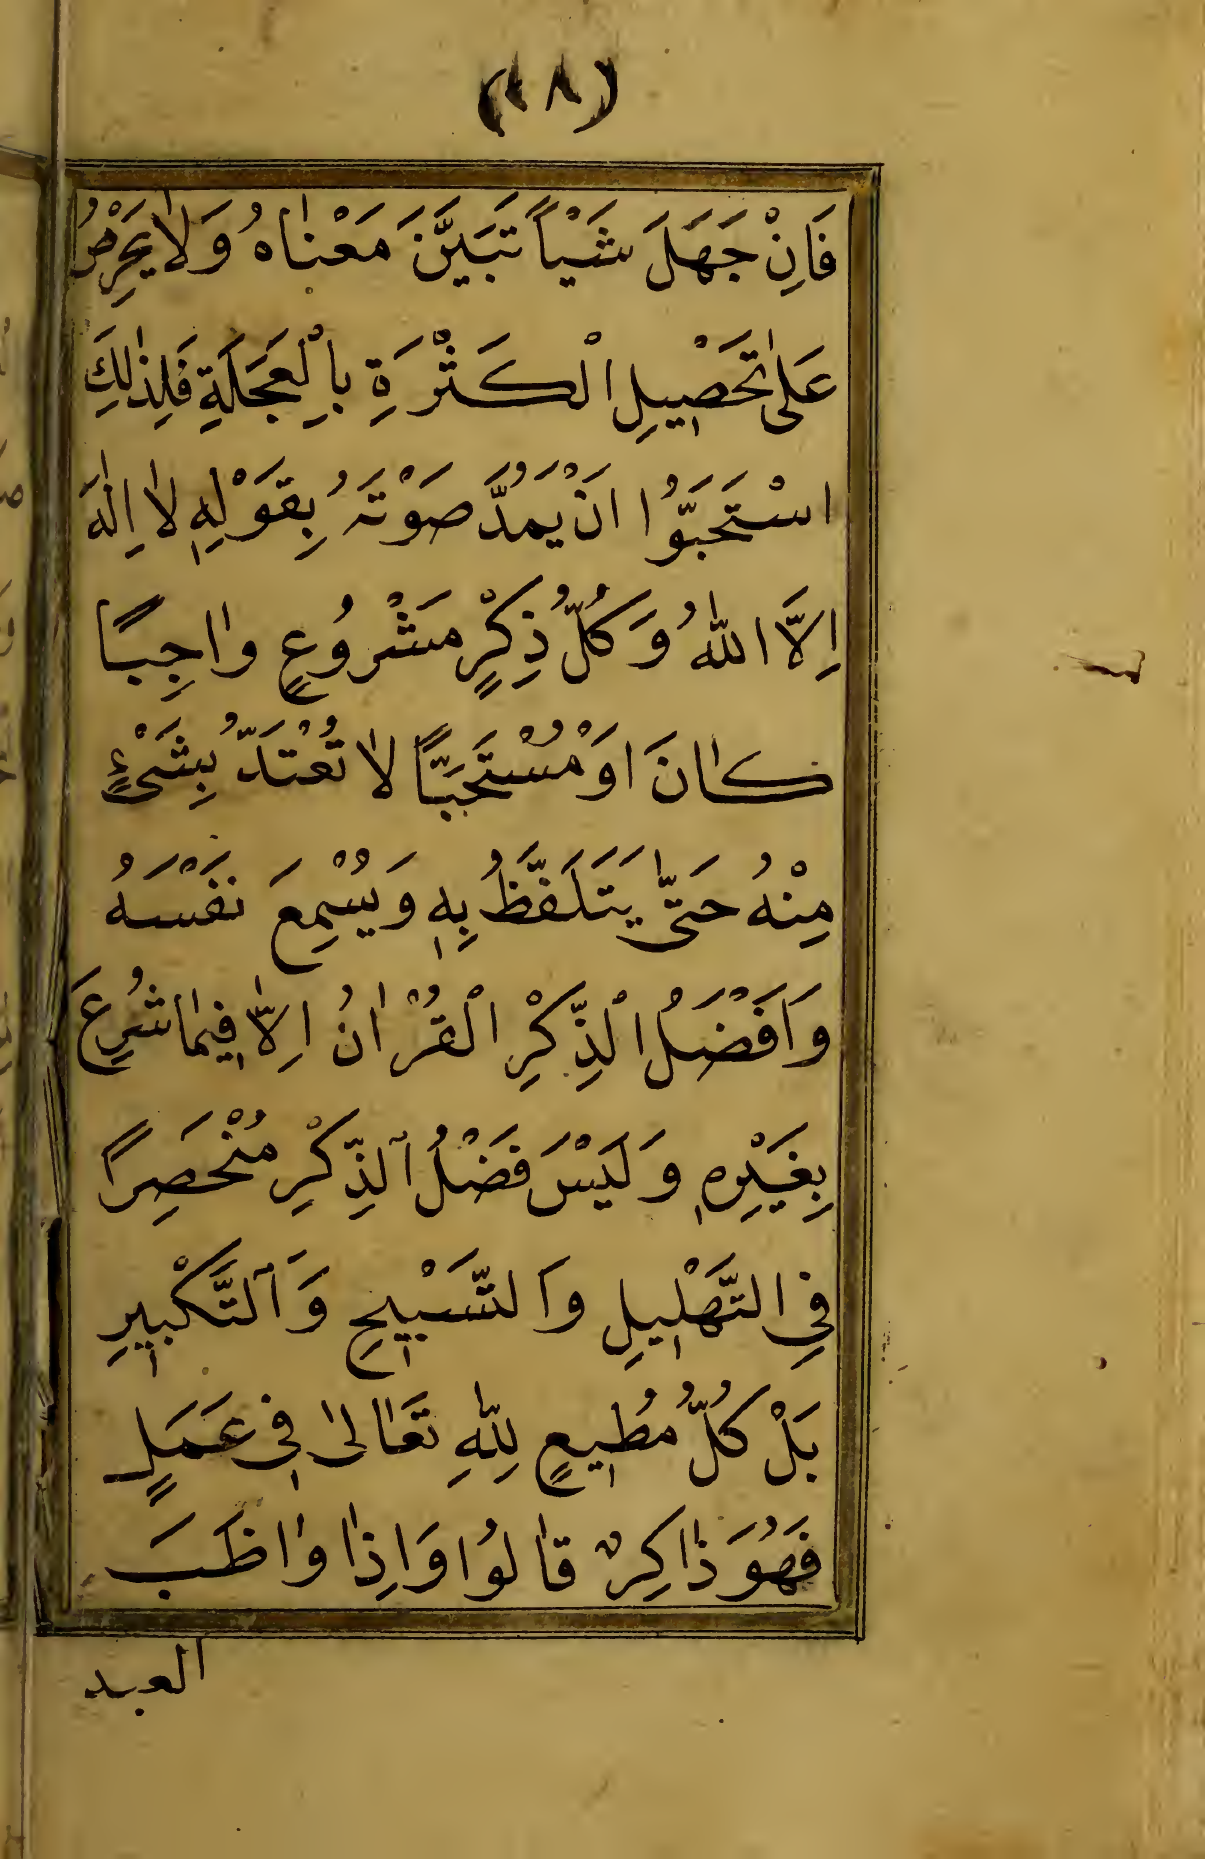 (١٨)
فَاِنْ جَهَلَ شَيْاً تَبَيَّنَ مَعْنٰاهُ وَلٰا يَحْرِصُ
عَلٰى تَحْصٖيلِ الْكَثْرَةِ بِالْعَجَلَةِ فَلِذٰلِكَ
اسْتَحَبُّوا اَنْ يَمُدَّ صَوْتَهُ بِقَوْلِهٖ لٰا اِلٰهَ
اِلاَّ اللّٰهُ وَكُلُّ ذِكْرٍ مَشْرُوُعٍ وٰاجِبًا
كٰانَ اَوْ مُسْتَحَبًّا لٰا تُعْتَدُّ بِشَىْءٍ
مِنْهُ حَتّٰى يَتَلَفَّظُ بِهٖ وَيُسْمِعَ نَفْسَهُ
وَاَفْضَلُ الْذِّكْرِ الْقُرْاٰنُ اِلاّٰ فٖيمٰا شُرِعَ
بِغَيْرِهٖ وَلَيْسَ فَضْلُ الذِّكْرِ مُنْحَصِرًا
فِى التَّهْلٖيلِ وَالتَّسْبٖيحِ وَالتَّكْبٖيرِ
بَلْ كُلُّ مُطٖيعٍ لِلّٰهِ تَعٰالىٰ فٖى عَمَلٍ
فَهُوَ ذٰاكِرٌ قٰالُوا وَاِذٰا وٰاظَبَ
العبد